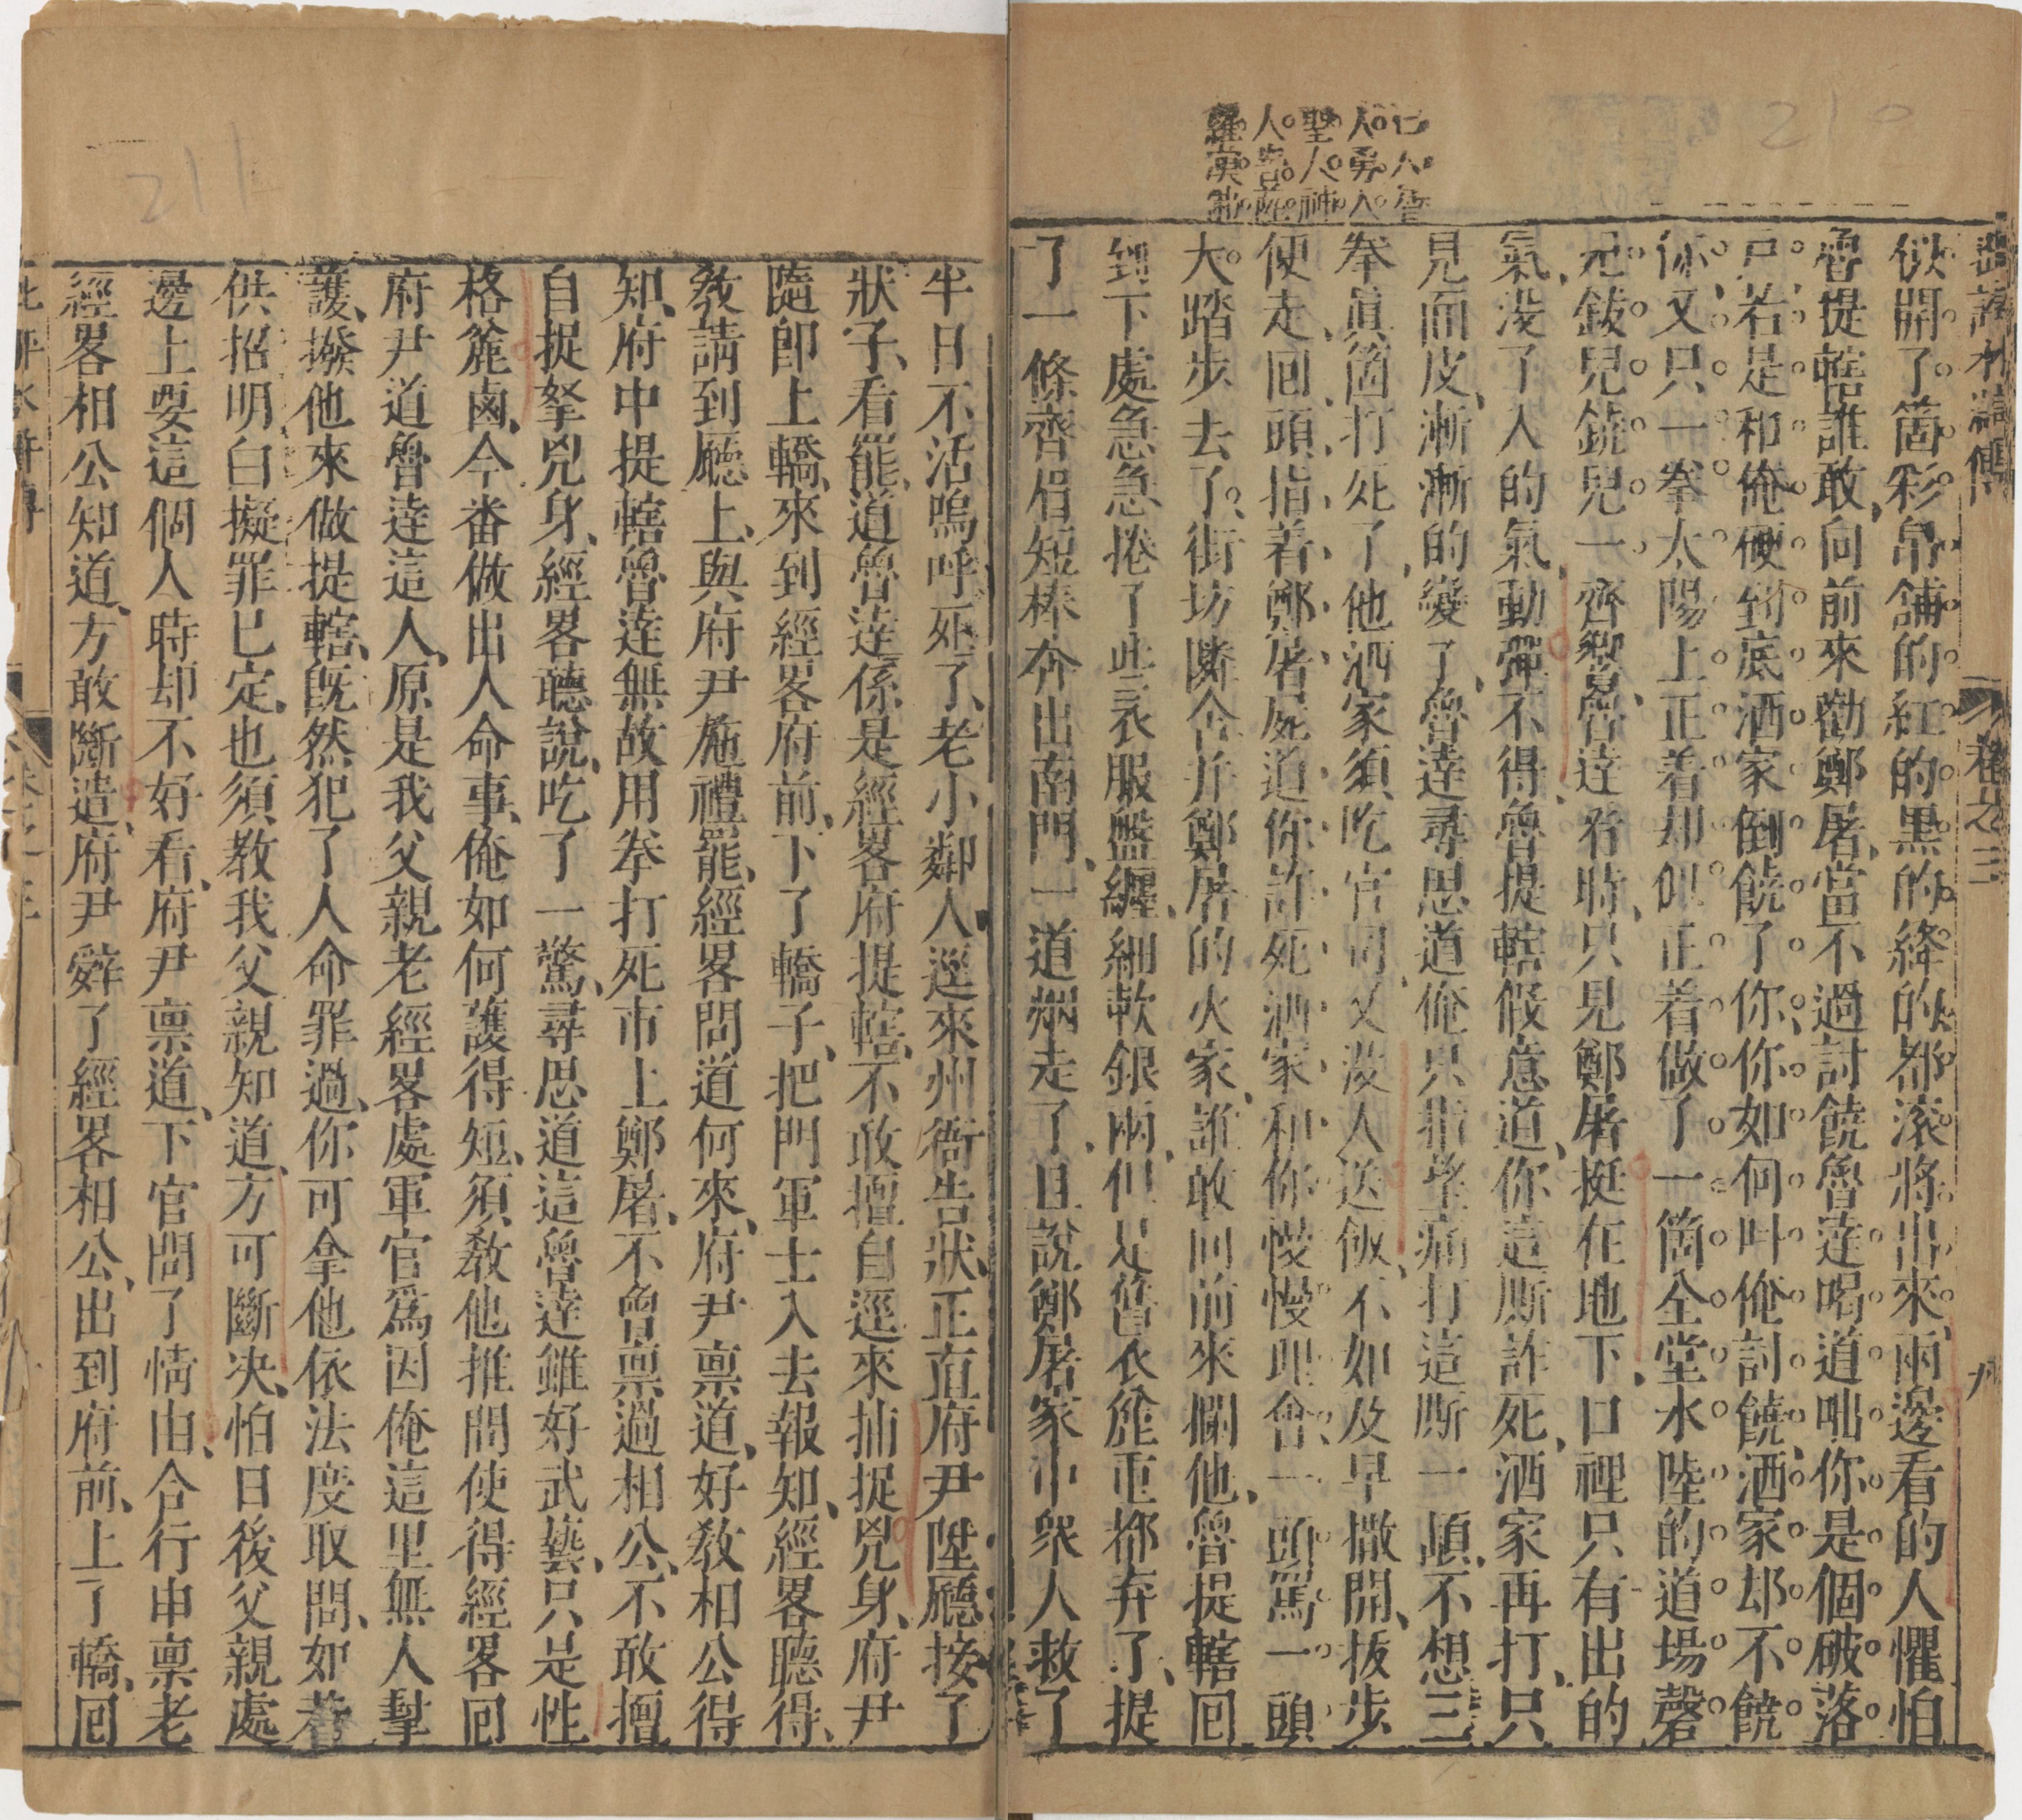 仁人智
人勇人
聖人神
人菩薩
羅漢佛
卷之三
九
似開了箇彩帛舖的紅的黑的絳的都滚將出來兩邊看的人懼怕
魯提轄誰敢向前來勸鄭屠當不過討饒魯達喝道咄你是個破落
戸若是和俺硬到底洒家倒饒了你你如何叫俺討饒洒家却不饒
你又只一拳太陽上正着却似正着做了一箇全堂水陸的道場磬
兒鈸兒鐃兒一齊響魯達看時只見鄭屠挺在地下口裡只有出的
氣没了入的氣動彈不得魯提轄假意道你這厮詐死洒家再打只
見面皮漸漸的變了魯達尋思道俺只指望痛打這厮一頓不想三
拳眞箇打死了他洒家須吃官司又没人送飯不如及早撒開拔步
便走回頭指着鄭屠屍道你詐死洒家和你慢慢理會一頭罵一頭
大踏步去了街坊隣舍并鄭屠的火家誰敢向前來攔他魯提轄回
到下處急急捲了些衣服盤纏細軟銀兩但是舊衣麄重都弃了提
了一條齊眉短棒奔出南門一道烟走了且說鄭屠家中衆人救了
半日不活嗚呼死了老小鄰人逕來州衙告狀正直府尹陞廳接了
狀子看罷道魯達係是經畧府提轄不敢擅自逕來捕捉兇身府尹
隨卽上轎來到經畧府前下了轎子把門軍士入去報知經畧聽得
教請到廳上與府尹施禮罷經畧問道何來府尹禀道好教相公得
知府中提轄魯達無故用拳打死市上鄭屠不曾禀過相公不敢擅
自捉拏兇身經畧聽說吃了一驚尋思道這魯達雖好武藝只是性
格麄鹵今番做出人命事俺如何護得短須教他推問使得經畧回
府尹道魯達這人原是我父親老經畧處軍官爲因俺這里無人幫
護撥他來做提轄旣然犯了人命罪過你可拿他依法度取問如若
供招明白擬罪已定也須教我父親知道方可斷决怕日後父親處
邊上要這個人時却不好看府尹禀道下官問了情由合行申禀老
經畧相公知道方敢斷遣府尹辤了經畧相公出到府前上了轎回